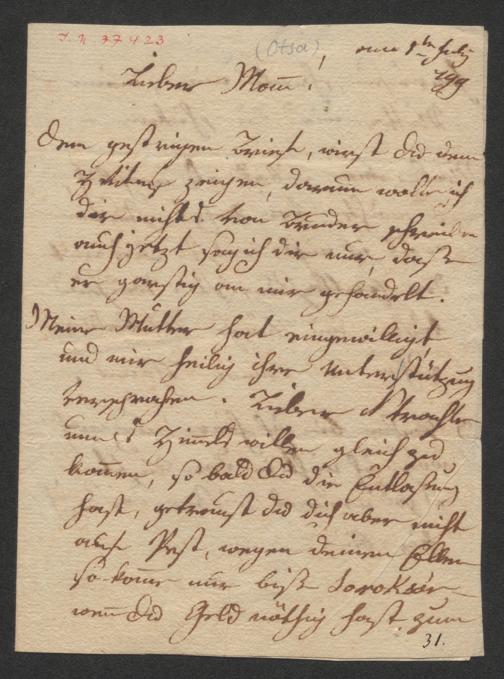 I. N. 37423
(Otsa)
am 1ten July
799
Lieber Mann!
Dem gestrigen Briefe, wirst Du dem
zeigen, darum wollte ich
dir nichts von Bruder schreiben
auch jetzt sag ich dir nur, daß
er garstig an mir gehandelt.
Meine Mutter hat eingewilligt
und mir heilig ihre Unterstützung
versprochen. Lieber trachte
um's Himelswillen gleich zu
kommen, so bald Du die Entlaßung
hast, getraust Du dich aber nicht
auf Pest, wegen deinen
so komme nur biß Soroksár
wenn Du Geld nöthig hast zum
31.